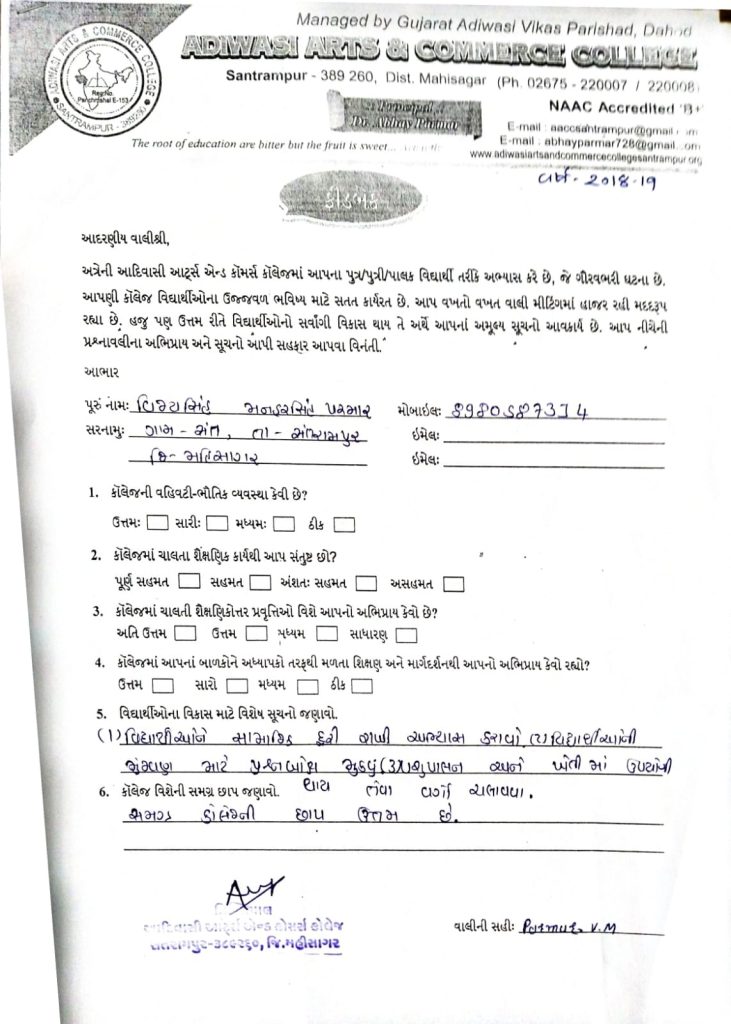 Managed by Gujarat Adiwasi Vikas Parishad, Dahod
ADIWASI ARTS & COMMERCE COLLEGE
ADIWASI ARTS & COMMERCE COLLEGE
Reg.No.
Panchmahal E-153
SANTRAMPUR - 389260
Santrampur - 389 260, Dist. Mahisagar (Ph. 02675 - 220007 / 220008)
Principal
Dr. Abhay Parmar
NAAC Accredited 'B+'
E-mail : aaccsahtrampur@gmail.com
E-mail : abhayparmar728@gmail.com
The root of education are bitter but the fruit is sweet...
www.adiwasiartsandcommercecollegesantrampur.org
વર્ષ - 2018-19
ફીડબેક
આદરણીય વાલીશ્રી,
અત્રેની આદિવાસી આર્ટ્સ એન્ડ કૉમર્સ કૉલેજમાં આપના પુત્ર/પુત્રી/પાલક વિદ્યાર્થી તરીકે અભ્યાસ કરે છે, જે ગૌરવભરી ઘટના છે.
આપણી કૉલેજ વિદ્યાર્થીઓના ઉજ્જવળ ભવિષ્ય માટે સતત કાર્યરત છે. આપ વખતો વખત વાલી મીટિંગમાં હાજર રહી મદદરૂપ
રહ્યા છે. હજુ પણ ઉત્તમ રીતે વિદ્યાર્થીઓનો સર્વાંગી વિકાસ થાય તે અર્થે આપનાં અમૂલ્ય સૂચનો આવકાર્ય છે. આપ નીચેની
પ્રશ્નાવલીના અભિપ્રાય અને સૂચનો આપી સહકાર આપવા વિનંતી.
આભાર
પૂરું નામઃ વિજયસિંહ મનહરસિંહ પરમાર મોબાઇલઃ
સરનામુઃ ગામ - સંત, તા - સંતરામપુર ઇમેલઃ
જિ - મહિસાગર ઇમેલઃ
1. કૉલેજની વહિવટી-ભૌતિક વ્યવસ્થા કેવી છે?
ઉત્તમઃ સારીઃ મધ્યમઃ ઠીક
2. કૉલેજમાં ચાલતા શૈક્ષણિક કાર્યથી આપ સંતુષ્ટ છો?
પૂર્ણ સહમત સહમત અંશતઃ સહમત અસહમત
3. કૉલેજમાં ચાલતી શૈક્ષણિકોત્તર પ્રવૃત્તિઓ વિશે આપનો અભિપ્રાય કેવો છે?
અતિ ઉત્તમ ઉત્તમ મધ્યમ સાધારણ
4. કૉલેજમાં આપનાં બાળકોને અધ્યાપકો તરફથી મળતા શિક્ષણ અને માર્ગદર્શનથી આપનો અભિપ્રાય કેવો રહ્યો?
ઉત્તમ સારો મધ્યમ ઠીક
5. વિદ્યાર્થીઓના વિકાસ માટે વિશેષ સૂચનો જણાવો.
(1) વિદ્યાર્થીઓને સામાજિક દુરી રાખી અભ્યાસ કરાવો (2) વિદ્યાર્થીઓની
મુંઝવણ માટે પ્રશ્નબોક્ષ મુકવું (3) પશુપાલન અને ખેતીમાં ઉપયોગી
6. કૉલેજ વિશેની સમગ્ર છાપ જણાવો. થાય તેવા વર્ગો ચલાવવા.
સમગ્ર કોલેજની છાપ ઉત્તમ છે.
આદિવાસી આર્ટ્સ એન્ડ કોમર્સ કોલેજ
સંતરામપુર-૩૮૯૨૬૦, જિ.મહીસાગર
વાલીની સહીઃ Parmar V.M